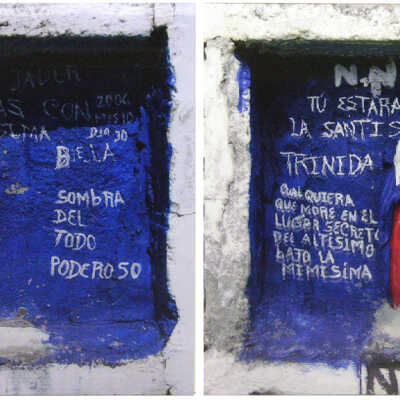 JADER
AS CON 2006
MES10
LMA DIA 30
DE LA
SOMBRA
DEL
TODO
PODEROSO
N.N
TU ESTARA
LA SANTIS
TRINIDA
CUALQUIERA
QUE MORE EN EL
LUGAR SECRETO
DEL ALTISIMO
BAJO LA
MIMISIMA
N